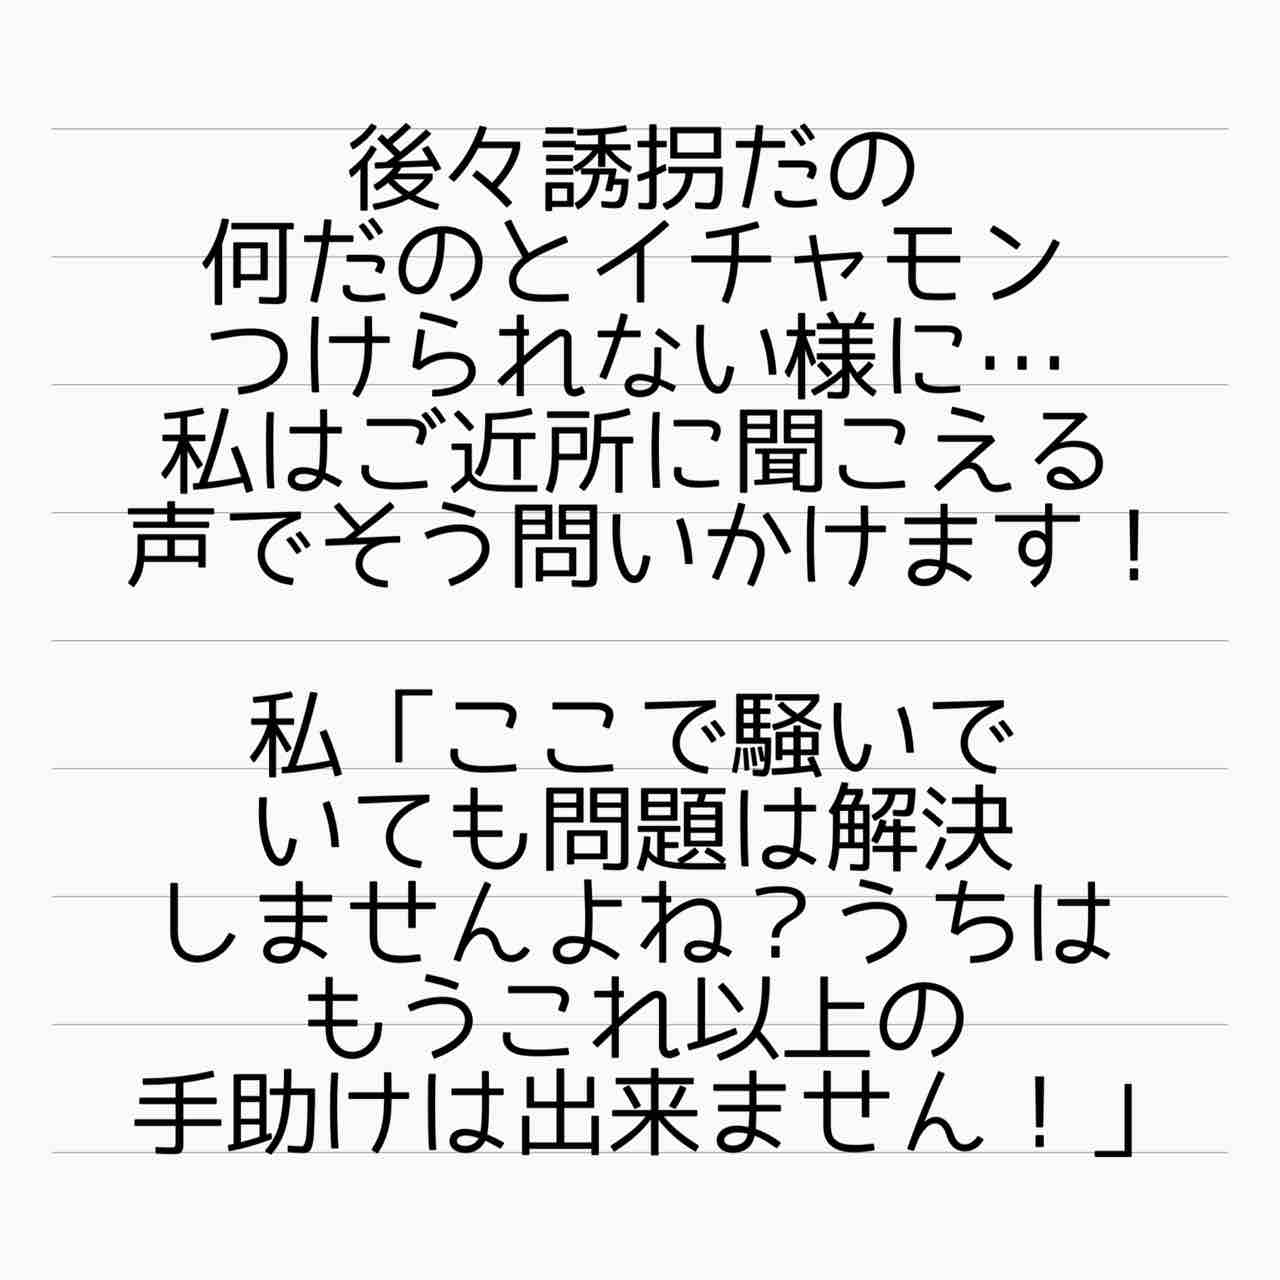 後々誘拐だの
何だのとイチャモン
つけられない様に…
私はご近所に聞こえる
声でそう問いかけます！
私「ここで騒いで
いても問題は解決
しませんよね？うちは
もうこれ以上の
手助けは出来ません！」